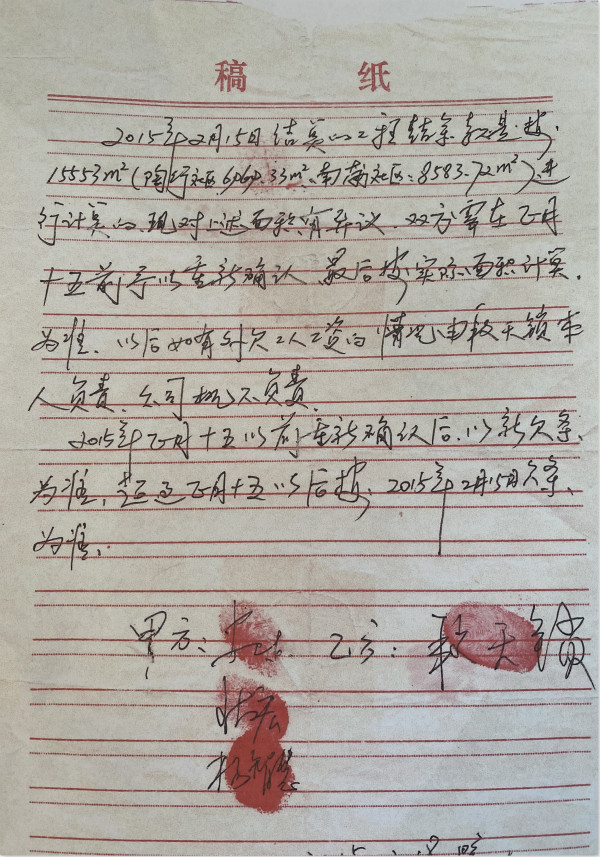 稿 纸
2015年2月15日结算的工程结余款是按
15553m²(陶行社区6969.33m²、南南社区:8583.72m²)进
行计算的,现对上述面积有异议,双方需在正月
十五前予以重新确认,最后按实际面积计算
为准、以后如有外欠工人工资的情况由天锁本
人负责、公司概不负责.
2015年正月十五以前重新确认后、以新欠条
为准,超过正月十五以后按、2015年2月15日欠条、
为准、
甲方: 乙方: 天锁
杨智慧